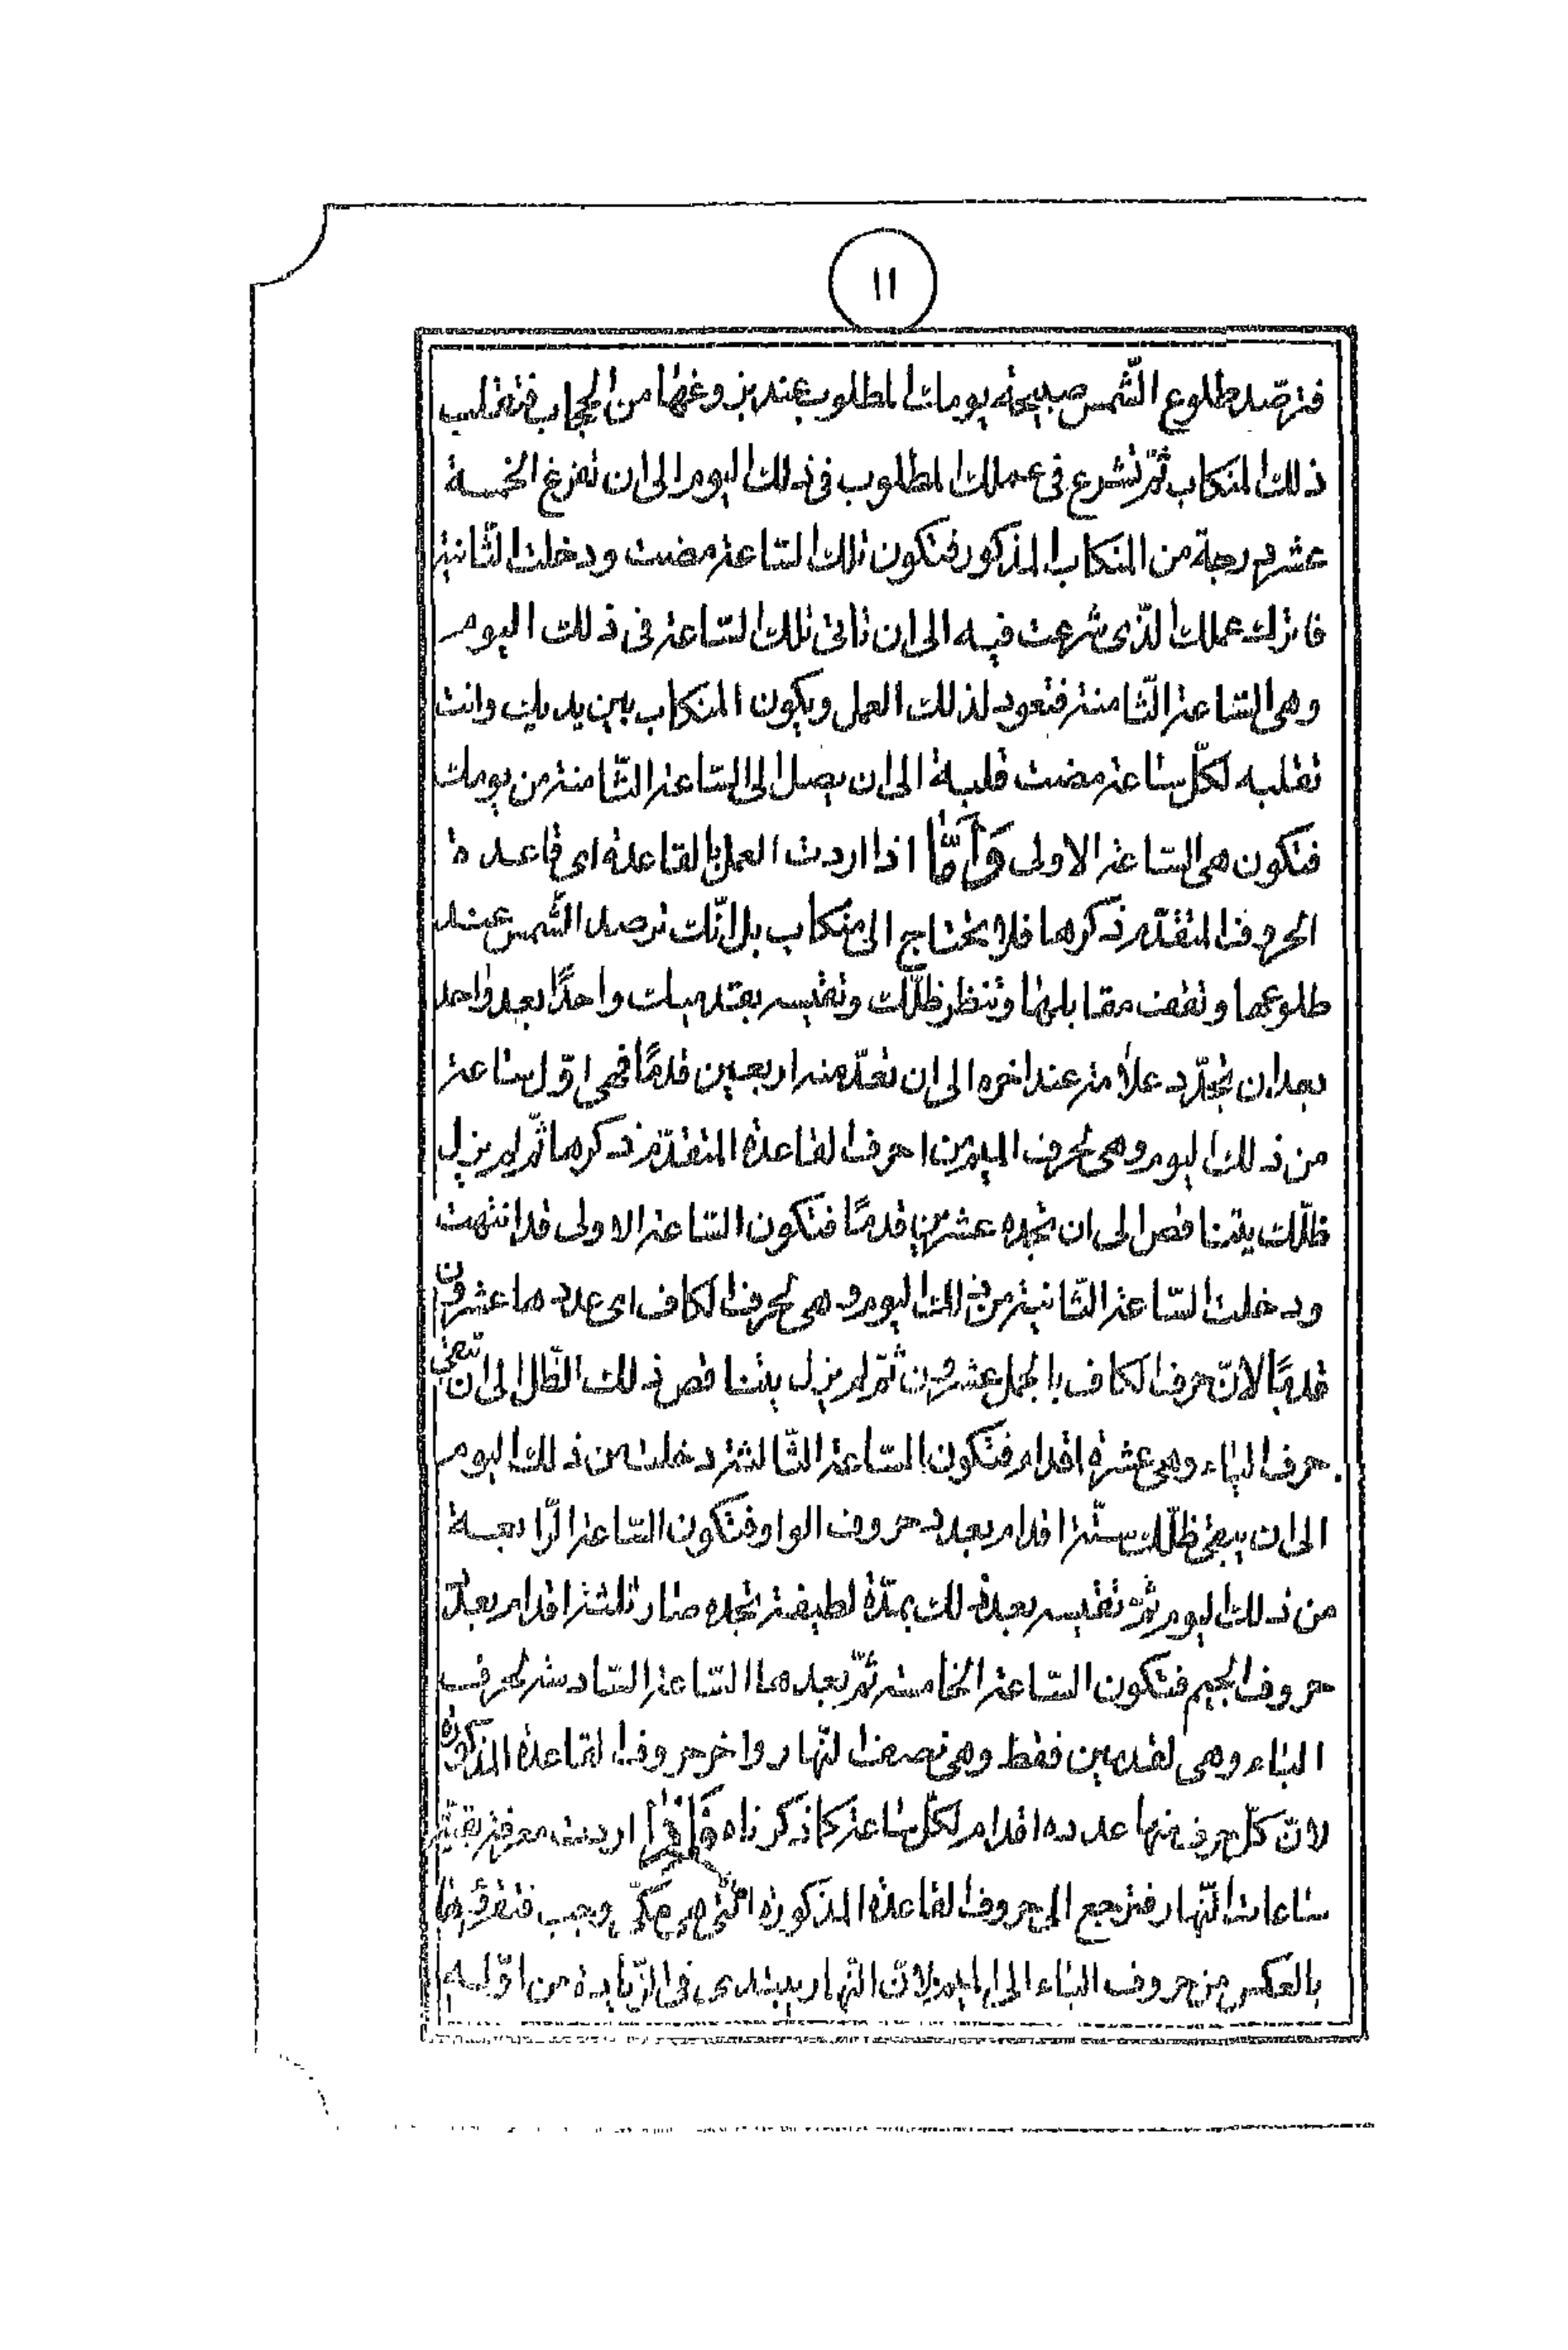 ١١
فترصّد طلوع الشّمس صبيحة يومك المطلوب عند بزوغها من الحجاب فتقلب
ذلك المنكاب ثمّ تشرع فى عملك المطلوب فى ذلك اليوم الى ان تفرغ الخمسة
عشر درجة من المنكاب المذكور فتكون تلك الساعة مضت ودخلت الثّانية
فاترك عملك الّذى شرعت فيه الى ان تاتى تلك السّاعة فى ذلك اليوم
وهى السّاعة الثّامنة فتعود لذلك العمل ويكون المنكاب بين يديك وانت
تقلبه لكلّ ساعة مضت قلبة الى ان يصل الى السّاعة الثّامنة من يومك
فتكون هى السّاعة الاولى وَأَمَّا اذا اردت العمل بالقاعدة اى قاعدة
الحروف المتقدّم ذكرها فلا يحتاج الى منكاب بل انّك ترصد الشّمس عند
طلوعها وتقف مقابلها وتنظر ظلّك وتقيسه بقدميك واحدًا بعد واحد
بعد ان تجرّد علامة عند اخره الى ان تعدّ منه اربعين قدمًا فهى اوّل ساعة
من ذلك اليوم وهى لحرف الميم من احرف القاعدة المتقدّم ذكرها ثمّ لم يزل
ظلّك يتناقص الى ان تجده عشرين قدمًا فتكون السّاعة الاولى قد انتهت
ودخلت السّاعة الثّانية من ذلك اليوم وهى لحرف الكاف اى عددها عشرون
قدمًا لانّ حرف الكاف بالجمل عشرون ثمّ لم يزل يتناقص ذلك الظّل الى ان تبقى
حرف الياء وهى عشرة اقدام فتكون السّاعة الثّالثة دخلت من ذلك اليوم
الى ان يبقى ظلّك ستّة اقدام بعدد حروف الواو فتكون السّاعة الرّابعة
من ذلك اليوم ثمّ تقيسه بعد ذلك بمدّة لطيفة تجده صار ثلثة اقدام بعدد
حروف الجيم فتكون السّاعة الخامسة ثمّ بعدها السّاعة السّادسة لحرف
الباء وهى لقدمين فقط وهى نصف النّهار واخر حروف القاعدة المذكورة
لانّ كلّ حرف منها عدده اقدام لكلّ ساعة كما ذكرناه وَإِذَا اردت معرفة بقيّة
ساعات النّهار فترجع الى حروف القاعدة المذكورة وجب فتقرؤها
بالعكس من حروف الباء الى الميم لانّ النّهار يبتدى فى الزّيادة من اوّله